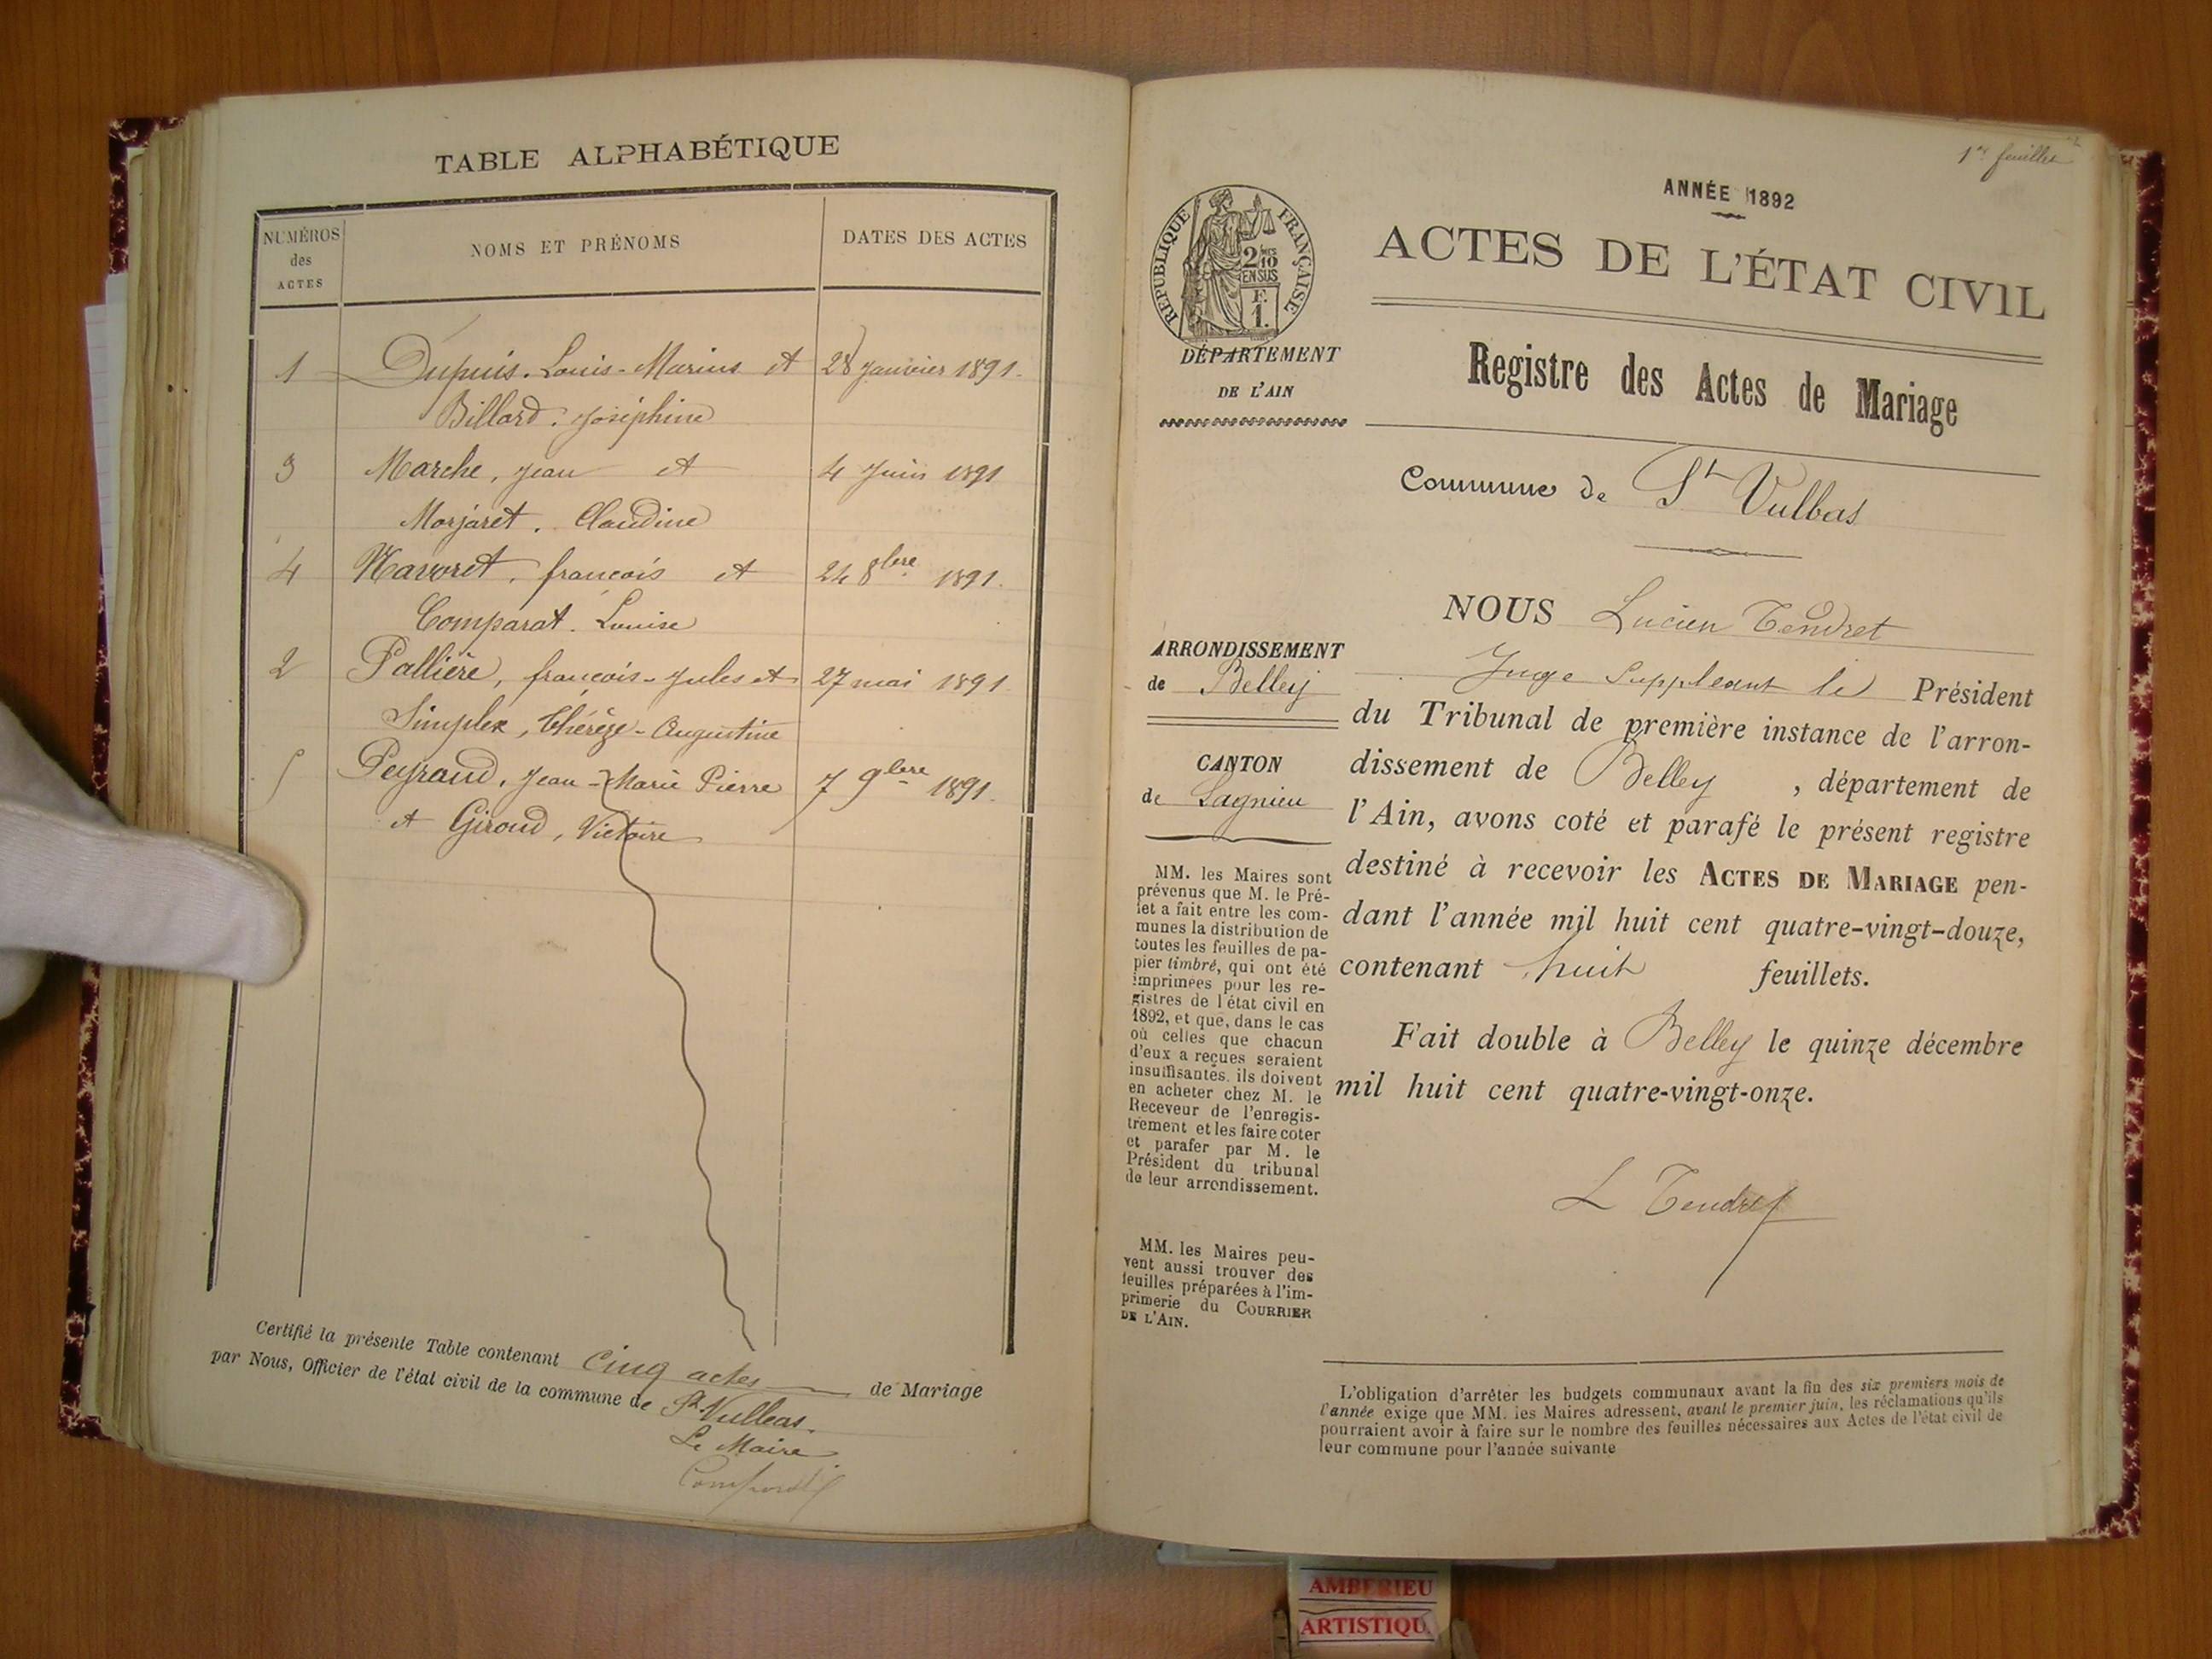 TABLE ALPHABÉTIQUE
NUMÉROS des ACTES
NOMS ET PRÉNOMS
DATES DES ACTES
1 Dupuis. Louis-Marius et 28 Janvier 1891.
Billard. Joséphine
3 Marche, Jean et 4 Juin 1891
Morjaret. Claudine
4 Navoret, françois et 24 8bre 1891.
Comparat. Louise
2 Pallière, françois-Jules et 27 mai 1891
Simplex, Thérèze-Augustine
5 Peyraud, Jean-Marie Pierre 7 9bre 1891.
et Giroud, Victoire
Certifié la présente Table contenant cinq actes de Mariage
par Nous, Officier de l'état civil de la commune de St Vulbas.
Le Maire
1er feuillet
ANNÉE 1892
RÉPUBLIQUE FRANÇAISE
2/10 EN SUS
F. 1.
ACTES DE L'ÉTAT CIVIL
DÉPARTEMENT
DE L'AIN
Registre des Actes de Mariage
Commune de St Vulbas
ARRONDISSEMENT
de Belley
CANTON
de Lagnieu
MM. les Maires sont
prévenus que M. le Pré-
fet a fait entre les com-
munes la distribution de
toutes les feuilles de pa-
pier timbré, qui ont été
imprimées pour les re-
gistres de l'état civil en
1892, et que, dans le cas
où celles que chacun
d'eux a reçues seraient
insuffisantes, ils doivent
en acheter chez M. le
Receveur de l'enregis-
trement et les faire coter
et parafer par M. le
Président du tribunal
de leur arrondissement.
MM. les Maires peu-
vent aussi trouver des
feuilles préparées à l'im-
primerie du COURRIER
DE L'AIN.
NOUS Lucien Tendret
Juge Suppléant le Président
du Tribunal de première instance de l'arron-
dissement de Belley, département de
l'Ain, avons coté et parafé le présent registre
destiné à recevoir les ACTES DE MARIAGE pen-
dant l'année mil huit cent quatre-vingt-douze,
contenant huit feuillets.
Fait double à Belley le quinze décembre
mil huit cent quatre-vingt-onze.
L Tendret
L'obligation d'arrêter les budgets communaux avant la fin des six premiers mois de
l'année exige que MM. les Maires adressent, avant le premier juin, les réclamations qu'ils
pourraient avoir à faire sur le nombre des feuilles nécessaires aux Actes de l'état civil de
leur commune pour l'année suivante
AMBERIEU
ARTISTIQU